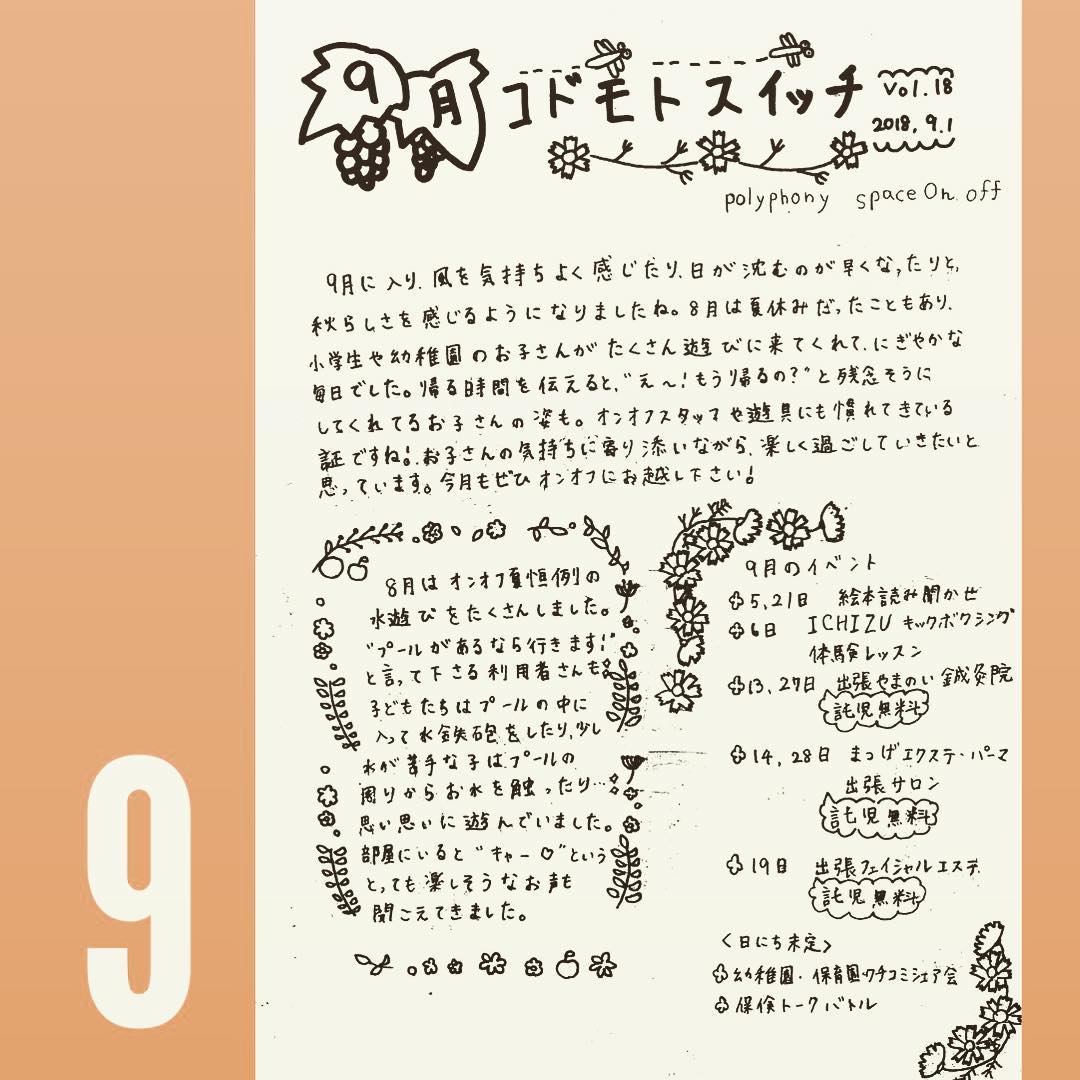 9月 コドモトスイッチ
Vol.18
2018.9.1
polyphony space On.off
9月に入り、風を気持ちよく感じたり、日が沈むのが早くなったりと、
秋らしさを感じるようになりましたね。8月は夏休みだったこともあり、
小学生や幼稚園のお子さんがたくさん遊びに来てくれて、にぎやかな
毎日でした。帰る時間を伝えると、"え〜!もう帰るの?"と残念そうに
してくれてるお子さんの姿も。オンオフスタッフや遊具にも慣れてきている
証ですね!お子さんの気持ちに寄り添いながら、楽しく過ごしていきたいと
思っています。今月もぜひオンオフにお越し下さい!
8月はオンオフ夏恒例の
水遊びをたくさんしました。
"プールがあるなら行きます!"
と言って下さる利用者さんも
子どもたちはプールの中に
入って水鉄砲をしたり、少し
水が苦手な子はプールの
周りからお水を触ったり…
思い思いに遊んでいました。
部屋にいると"キャー♡"という
とっても楽しそうなお声も
聞こえてきました。
9月のイベント
5,21日 絵本読み聞かせ
6日 ICHIZU キックボクシング
体験レッスン
13,27日 出張やまのい鍼灸院
託児無料
14,28日 まつげエクステ・パーマ
出張サロン
託児無料
19日 出張フェイシャルエステ
託児無料
<日にち未定>
幼稚園・保育園クチコミシェア会
保険トークバトル
9